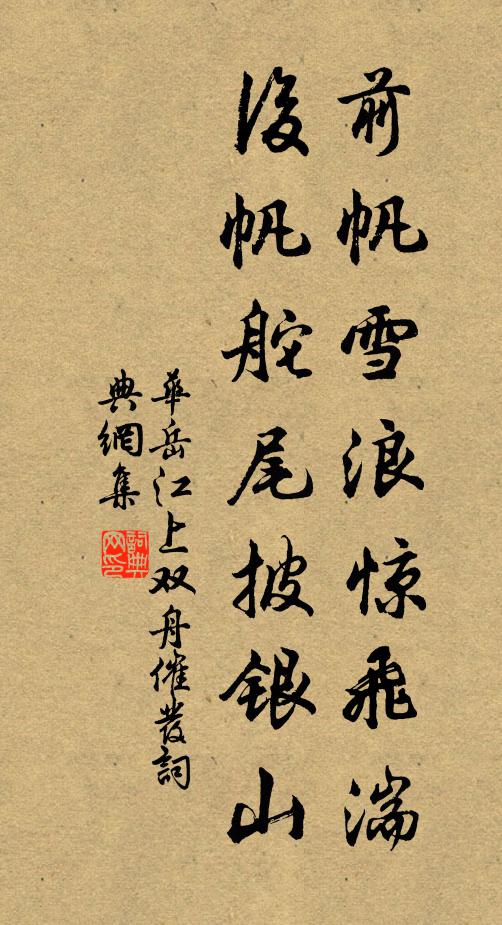 前帆雪浪惊飞湍
後帆舵尾披银山
華岳江上双舟催發詞
典網集
詞典网印